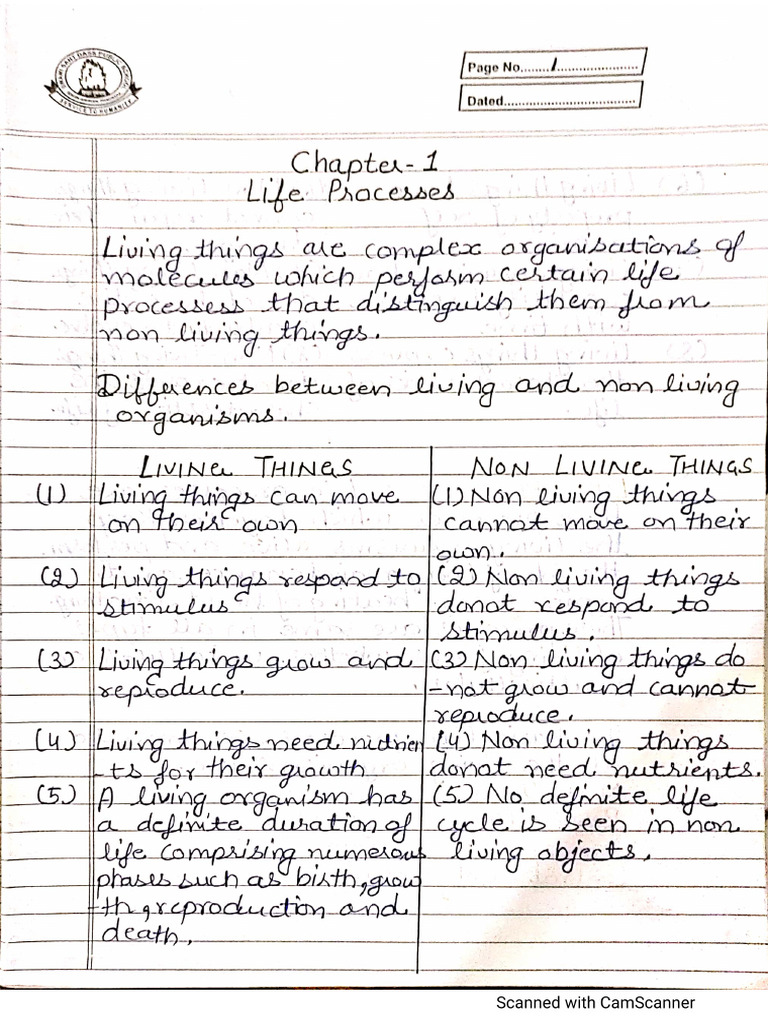 SWAMI SANT DASS PUBLIC SCHOOL
SERVICE TO HUMANITY
Page No......../......................
Dated.....................................
Chapter-1
Life Processes
Living things are complex organisations of
molecules which perform certain life
processess that distinguish them from
non living things.
Differences between living and non living
organisms.
LIVING THINGS
(1) Living things can move
on their own
(2) Living things respond to
stimulus
(3) Living things grow and
reproduce.
(4) Living things need nutrien
-ts for their growth
(5.) A living organism has
a definite duration of
life comprising numerous
phases such as birth, grow
-th, reproduction and
death.
NON LIVING THINGS
(1) Non living things
cannot move on their
own.
(2) Non living things
donot respond to
stimulus.
(3) Non living things do
-not grow and cannot
reproduce.
(4) Non living things
donot need nutrients.
(5.) No definite life
cycle is seen in non
living objects.
Scanned with CamScanner